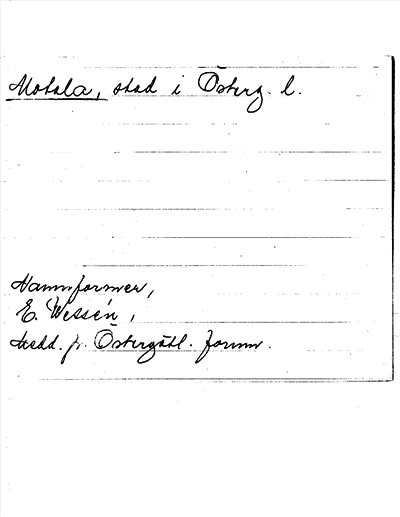 Motala, stad i Österg. l.
Namnformer,
E. Wessén,
Medd. fr. Östergötl. fornm.